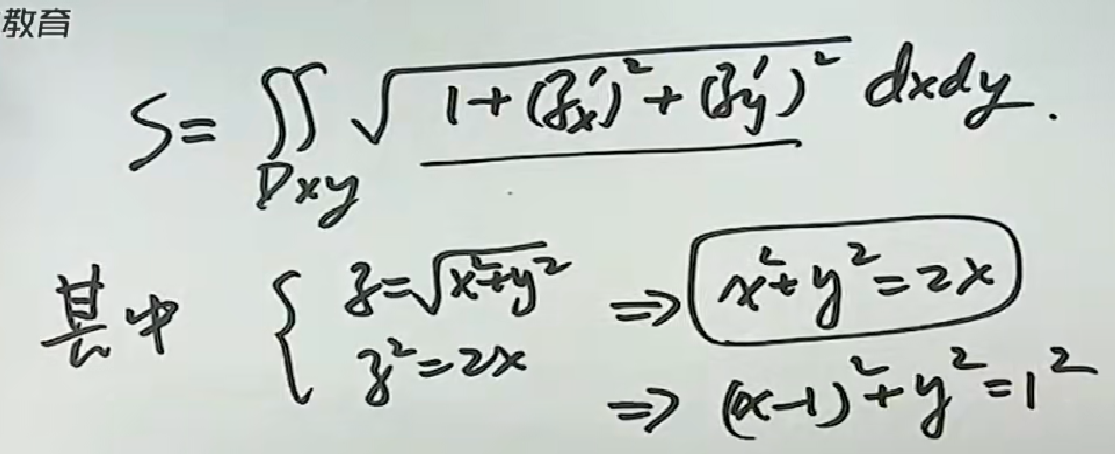 教育
S = ∬_{Dxy} √(1+(z'_x)²+(z'_y)²) dxdy.
其中 { z=√(x²+y²) ⇒ x²+y²=2x
z²=2x ⇒ (x-1)²+y²=1²